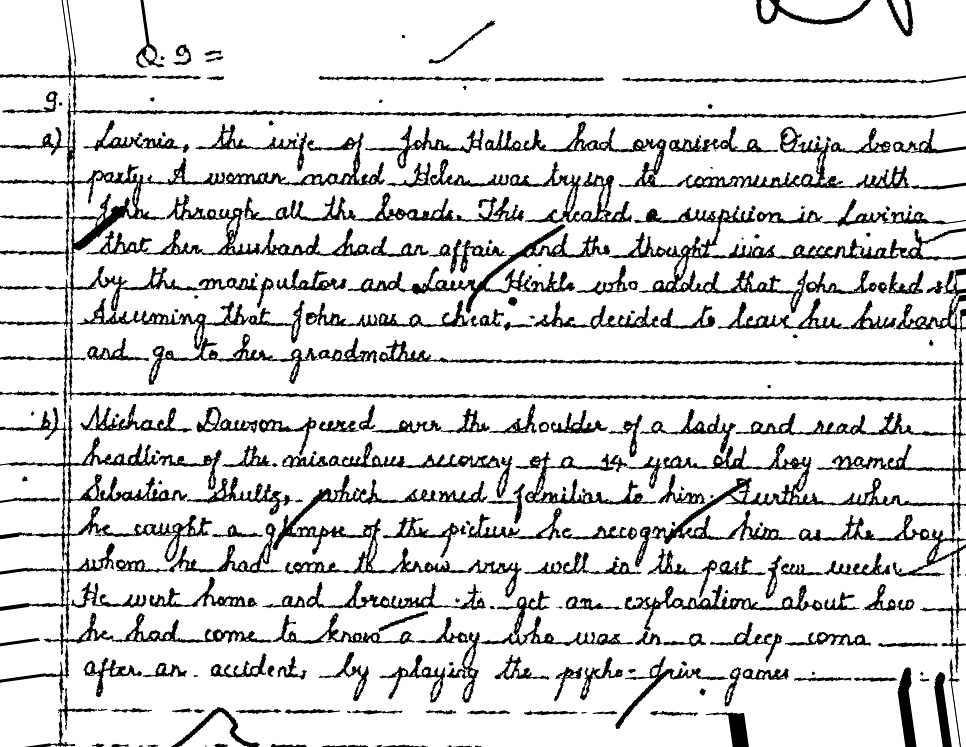 Q. 9 =
9.
a) Lavinia, the wife of John Hallock had organised a Ouija board
party. A woman named Helen was trying to communicate with
John through all the boards. This created a suspicion in Lavinia
that her husband had an affair and the thought was accentuated
by the manipulators and Laura Hinkle who added that John looked
Assuming that John was a cheat, she decided to leave her husband
and go to her grandmother.
b) Michael Dawson peered over the shoulder of a lady and read the
headline of the miraculous recovery of a 14 year old boy named
Sebastian Shultz, which seemed familiar to him. Further when
he caught a glimpse of the picture he recognised him as the boy
whom he had come to know very well in the past few weeks.
He went home and browsed to get an explanation about how
he had come to know a boy who was in a deep coma
after an accident, by playing the psycho-drive games.